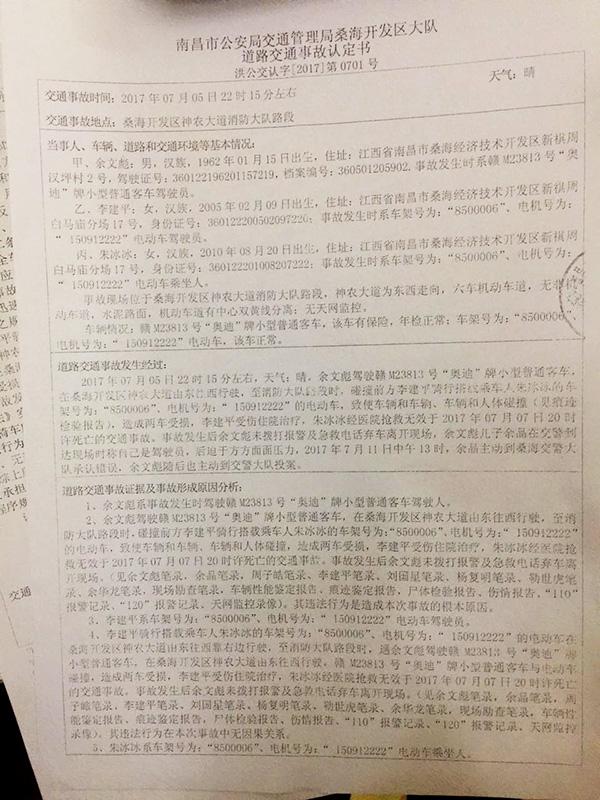 南昌市公安局交通管理局桑海开发区大队
道路交通事故认定书
洪公交认字[2017]第0701号
天气：晴
交通事故时间：2017年07月05日22时15分左右
交通事故地点：桑海开发区神农大道消防大队路段
当事人、车辆、道路和交通环境等基本情况：
甲、余文彪：男，汉族，1962年01月15日出生，住址：江西省南昌市桑海经济技术开发区新祺周
汉坪村2号，驾驶证号：360122196201157219，档案编号：360501205902，事故发生时系赣M23813号“奥
迪”牌小型普通客车驾驶员。
乙、李建平：女，汉族，2005年02月09日出生，住址：江西省南昌市桑海经济技术开发区新祺周
白马庙分场17号，身份证号：360122200502097220；事故发生时系车架号为：“8500006”、电机号为：
“ 150912222”电动车驾驶员。
丙、朱冰冰：女，汉族，2010年08月20日出生，住址：江西省南昌市桑海经济技术开发区新祺周
白马庙分场17号，身份证号：360122201008207222；事故发生时系车架号为：“8500006”、电机号为：
“ 150912222”电动车乘坐人。
事故现场位于桑海开发区神农大道消防大队路段，神农大道为东西走向，六车机动车道，无非机
动车道，水泥路面，机动车道有中心双黄线分离；无天网监控。
车辆情况：赣M23813号“奥迪”牌小型普通客车，该车有保险，年检正常；车架号为：“8500006”、
电机号为：“ 150912222”电动车，该车正常。
道路交通事故发生经过：
2017年07月05日22时15分左右，天气：晴，余文彪驾驶赣M23813号“奥迪”牌小型普通客车，
在桑海开发区神农大道由东往西行驶，至消防大队路段时，碰撞前方李建平骑行搭载乘车人朱冰冰的车
架号为：“8500006”、电机号为：“ 150912222”的电动车，致使车辆和车辆、车辆和人体碰撞（见痕迹
检验报告），造成两车受损，李建平受伤住院治疗，朱冰冰经医院抢救无效于2017年07月07日20时
许死亡的交通事故。事故发生后余文彪未拨打报警及急救电话弃车离开现场，余文彪儿子余晶在交警到
达现场时称自己是驾驶员，后迫于方方面面压力，2017年7月11日中午13时，余晶主动到桑海交警大
队承认错误，余文彪随后也主动到交警大队投案。
道路交通事故证据及事故形成原因分析：
1、余文彪系事故发生时驾驶赣M23813号“奥迪”牌小型普通客车驾驶人。
2、余文彪驾驶赣M23813号“奥迪”牌小型普通客车，在桑海开发区神农大道由东往西行驶，至消
防大队路段时，碰撞前方李建平骑行搭载乘车人朱冰冰的车架号为：“8500006”、电机号为：“ 150912222”
的电动车，致使车辆和车辆、车辆和人体碰撞，造成两车受损，李建平受伤住院治疗，朱冰冰经医院抢
救无效于2017年07月07日20时许死亡的交通事故。事故发生后余文彪未拨打报警及急救电话弃车离
开现场。（见余文彪笔录、余晶笔录、周子皓笔录、李建平笔录、刘国星笔录、杨复明笔录、勒世虎笔
录、余华龙笔录，现场勘查笔录，车辆性能鉴定报告、痕迹鉴定报告，尸体检验报告、伤情报告、“110”
报警记录、“120”报警记录、天网监控录像）。其违法行为是造成本次事故的根本原因。
3、李建平系车架号为：“8500006”、电机号为：“ 150912222”电动车驾驶员。
4、李建平骑行搭载乘车人朱冰冰的车架号为：“8500006”、电机号为：“ 150912222”的电动车在
桑海开发区神农大道由东往西靠右边行驶，至消防大队路段时，遇余文彪驾驶赣M23813号“奥迪”牌
小型普通客车，在桑海开发区神农大道由东往西行驶。赣M23813号“奥迪”牌小型普通客车与电动车
碰撞，造成两车受损，李建平受伤住院治疗，朱冰冰经医院抢救无效于2017年07月07日20时许死亡
的交通事故。事故发生后余文彪未拨打报警及急救电话弃车离开现场。（见余文彪笔录、余晶笔录、周
子皓笔录、李建平笔录、刘国星笔录、杨复明笔录、勒世虎笔录、余华龙笔录，现场勘查笔录，车辆性
能鉴定报告、痕迹鉴定报告，尸体检验报告、伤情报告、“110”报警记录、“120”报警记录、天网监控
录像）。其违法行为在本次事故中无因果关系。
5、朱冰冰系车架号为：“8500006”、电机号为：“ 150912222”电动车乘坐人。